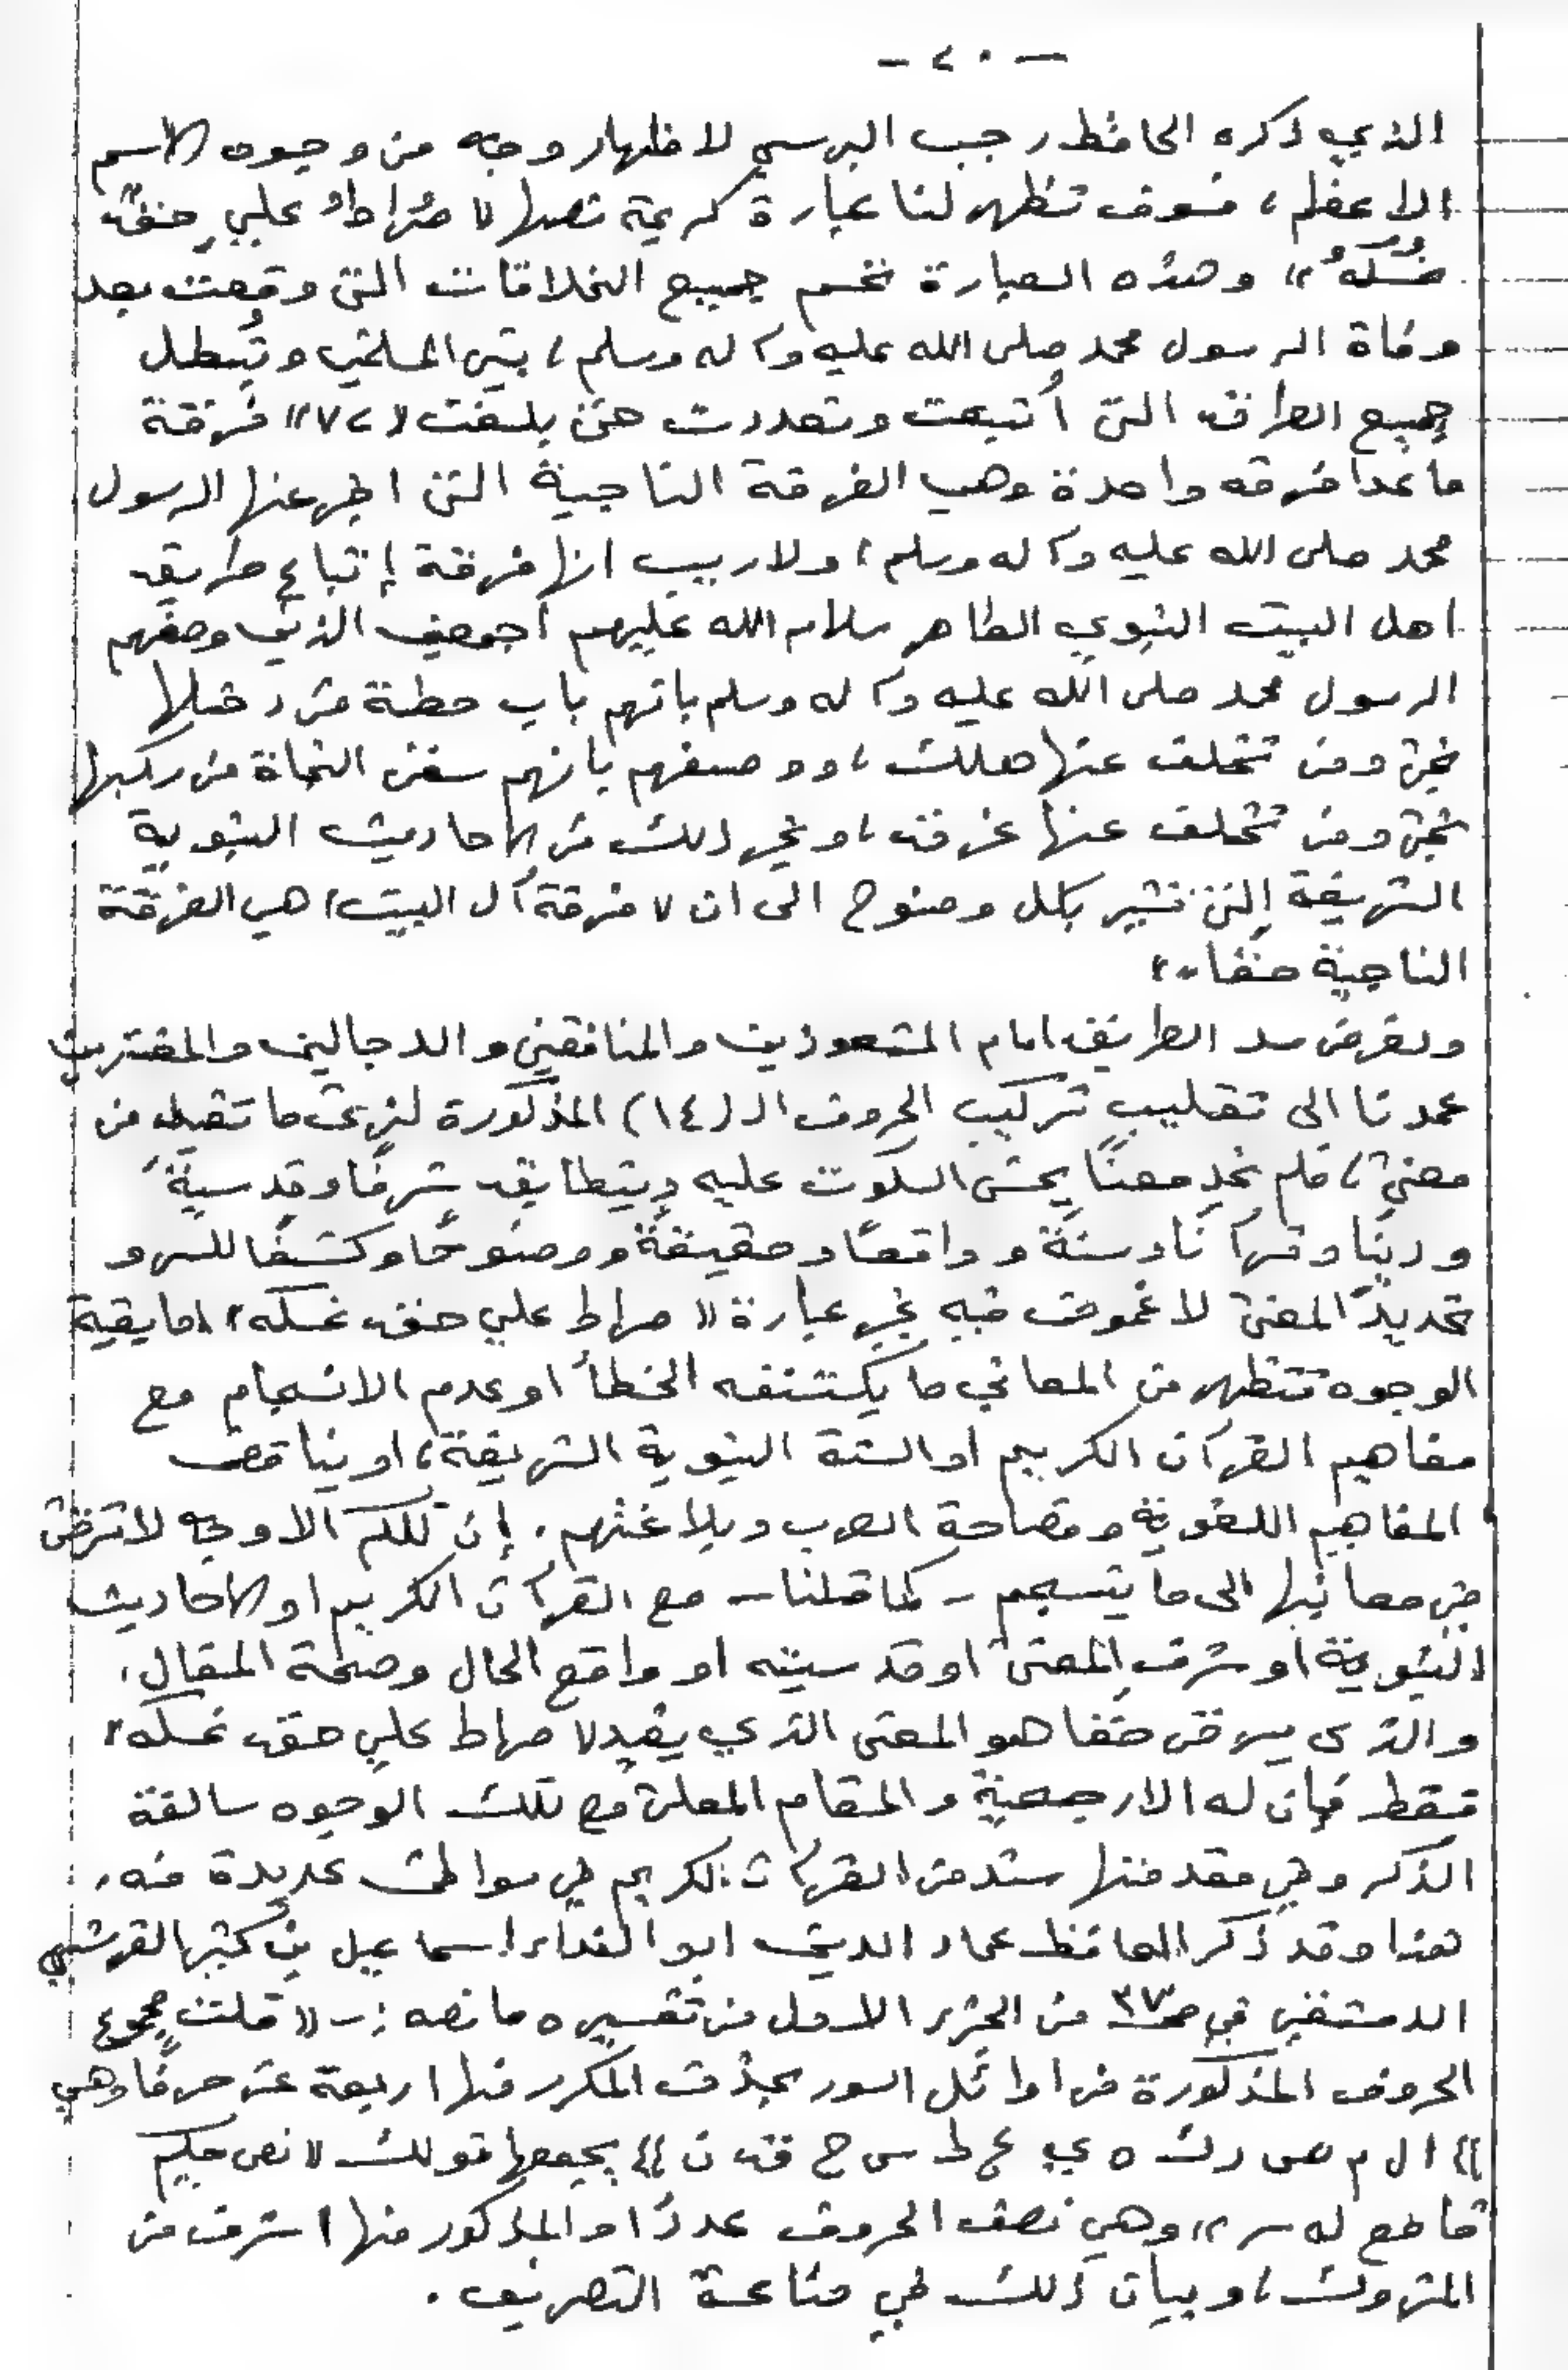 — ٢٠ —
الذي ذكره الحافظ رجب البرسي لاظهار وجه من وجوه الاسم
الاعظم، فسوف تظهر لنا عبارة كريمة نصها « صراطُ عليٍ حقٌ
نمسكُهُ » وهذه العبارة تحسم جميع الخلافات التي وقعت بعد
وفاة الرسول محمد صلى الله عليه وآله وسلم، بين المسلمين وتُبطل
جميع الطرائق التي أُتبعت وتعددت حتى بلغت «٧٢» فرقة
ماعدا فرقه واحدة وهي الفرقة الناجية التي اخبر عنها الرسول
محمد صلى الله عليه وآله وسلم، ولاريب انها فرقة إتباع طريق
اهل البيت النبوي الطاهر سلام الله عليهم أجمعين الذين وصفهم
الرسول محمد صلى الله عليه وآله وسلم بانهم باب حطة من دخلها
نجى ومن تخلف عنها هلك، ووصفهم بانهم سفن النجاة من ركبها
نجى ومن تخلف عنها غرق، وغير ذلك من الاحاديث النبوية
الشريفة التي تشير بكل وضوح الى ان « فرقة آل البيت» هي الفرقة
الناجية حقا ..»
ولغرض سد الطريق امام المشعوذين والمنافقين والدجالين والمفترين
عمدنا الى تقليب تركيب الحروف الـ (١٤) المذكورة لنرى ما تفيد من
معنى، فلم نجد معنًا يحسن السكوت عليه ويتطابق شرفًا وقدسيةً
ودينًا وقرآنًا وسنةً وواقعًا وحقيقةً ووضوحًا وكشفًا للسر و
تحديدً المعنى لا غموض فيه غير عبارة « صراط علي حق نمسكه » اما بقية
الوجوه فتظهر من المعاني ما يكتنفه الخطأ او عدم الانسجام مع
مفاهيم القرآن الكريم او السنة النبوية الشريفة، او يناقض
المفاهيم اللغوية وفصاحة العرب وبلاغتهم. إن تلكم الاوجه لاترقى
في معانيها الى ما ينسجم – كما قلنا – مع القرآن الكريم او الاحاديث
النبوية او شرف المعنى او قدسيته او واقع الحال وصحة المقال.
والذي يرقى حقا هو المعنى الذي يفيد « صراط علي حق نمسكه »
فقط فإن له الارجحية والمقام المعلى مع تلك الوجوه سالفة
الذكر وفي مقدمتها سند من القرآن الكريم في مواطن عديدة منه.
هذا وقد ذكر الحافظ عماد الدين ابو الفداء اسماعيل بن كثير القرشي
الدمشقي في ص٣٧ من الجزء الاول من تفسيره ما نصه :- « قلت مجموع
الحروف المذكورة في اوائل السور بحذف المكرر منها اربعة عشر حرفًا وهي
}} ا ل م ص ر ك ه ي ع ط س ح ق ن {{ يجمعها قولك « نص حكيم
قاطع له سر » وهي نصف الحروف عددًا والمذكور منها اشرف من
المتروك، وبيان ذلك في صناعة التصريف .